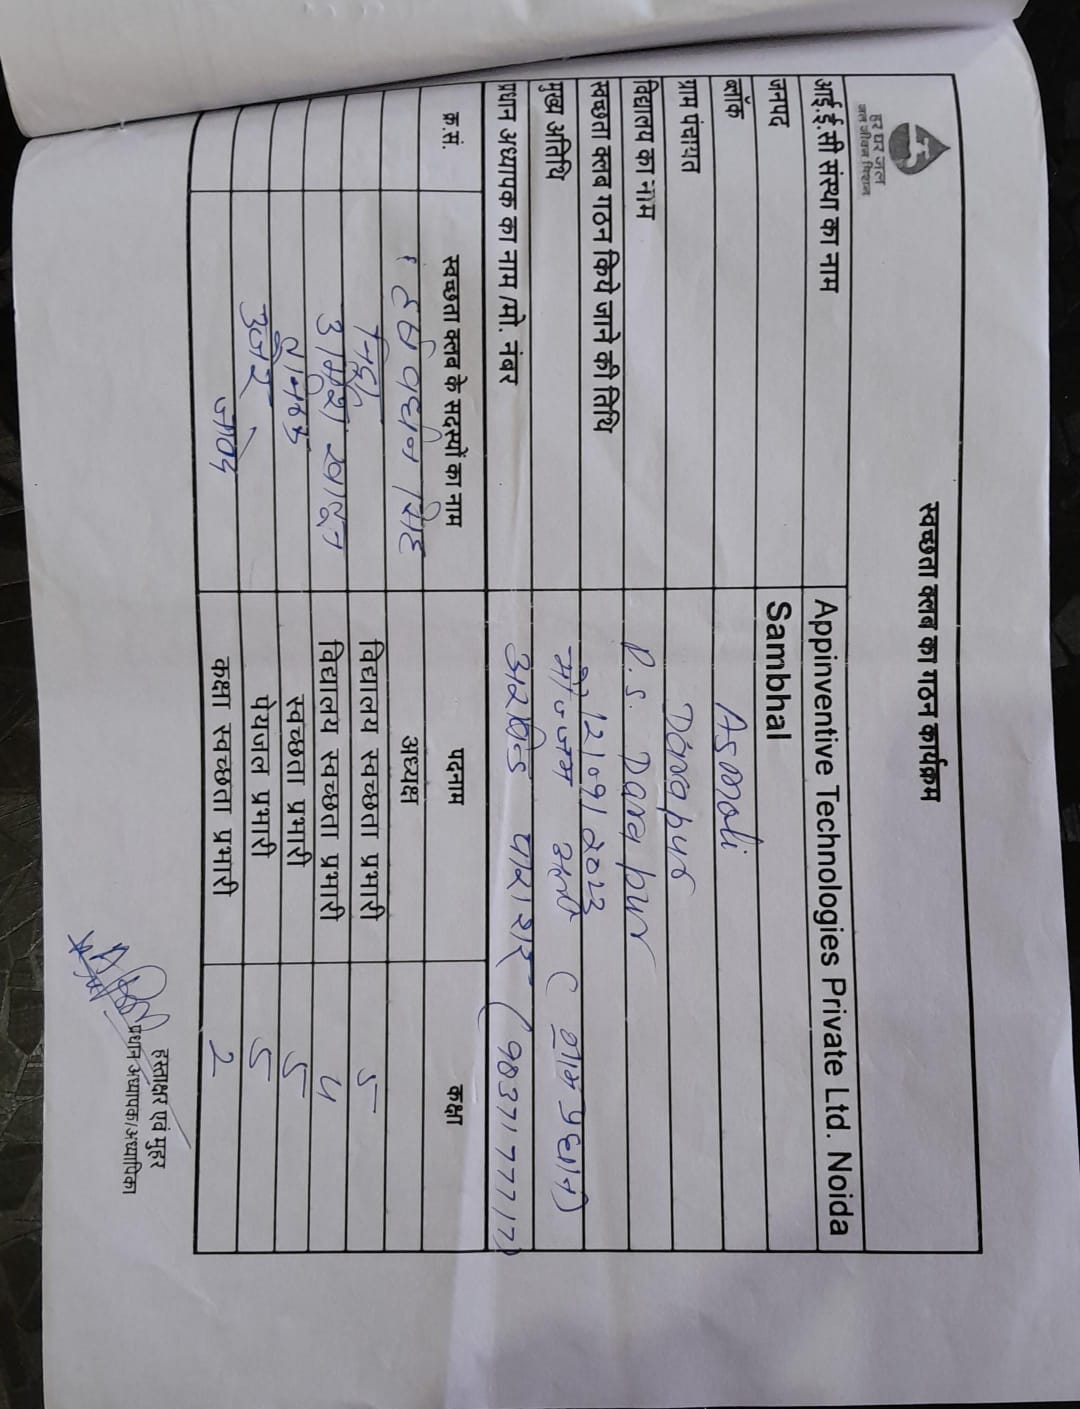 हर घर जल
जल जीवन मिशन
स्वच्छता क्लब का गठन कार्यक्रम
आई.ई.सी संस्था का नाम Appinventive Technologies Private Ltd. Noida
जनपद Sambhal
ब्लॉक Asmoli
ग्राम पंचायत Darapur
विद्यालय का नाम P.S. Darapur
स्वच्छता क्लब गठन किये जाने की तिथि 12/09/2023
मुख्य अतिथि ( ग्राम प्रधान )
प्रधान अध्यापक का नाम /मो. नंबर अरविन्द पाराशर (9837177717)
क्र.सं. स्वच्छता क्लब के सदस्यों का नाम पदनाम कक्षा
हर्ष वर्धन सिंह अध्यक्ष
विद्यालय स्वच्छता प्रभारी 5
खातून विद्यालय स्वच्छता प्रभारी 4
स्वच्छता प्रभारी 5
पेयजल प्रभारी 5
कक्षा स्वच्छता प्रभारी 2
हस्ताक्षर एवं मुहर
प्रधान अध्यापक/अध्यापिका